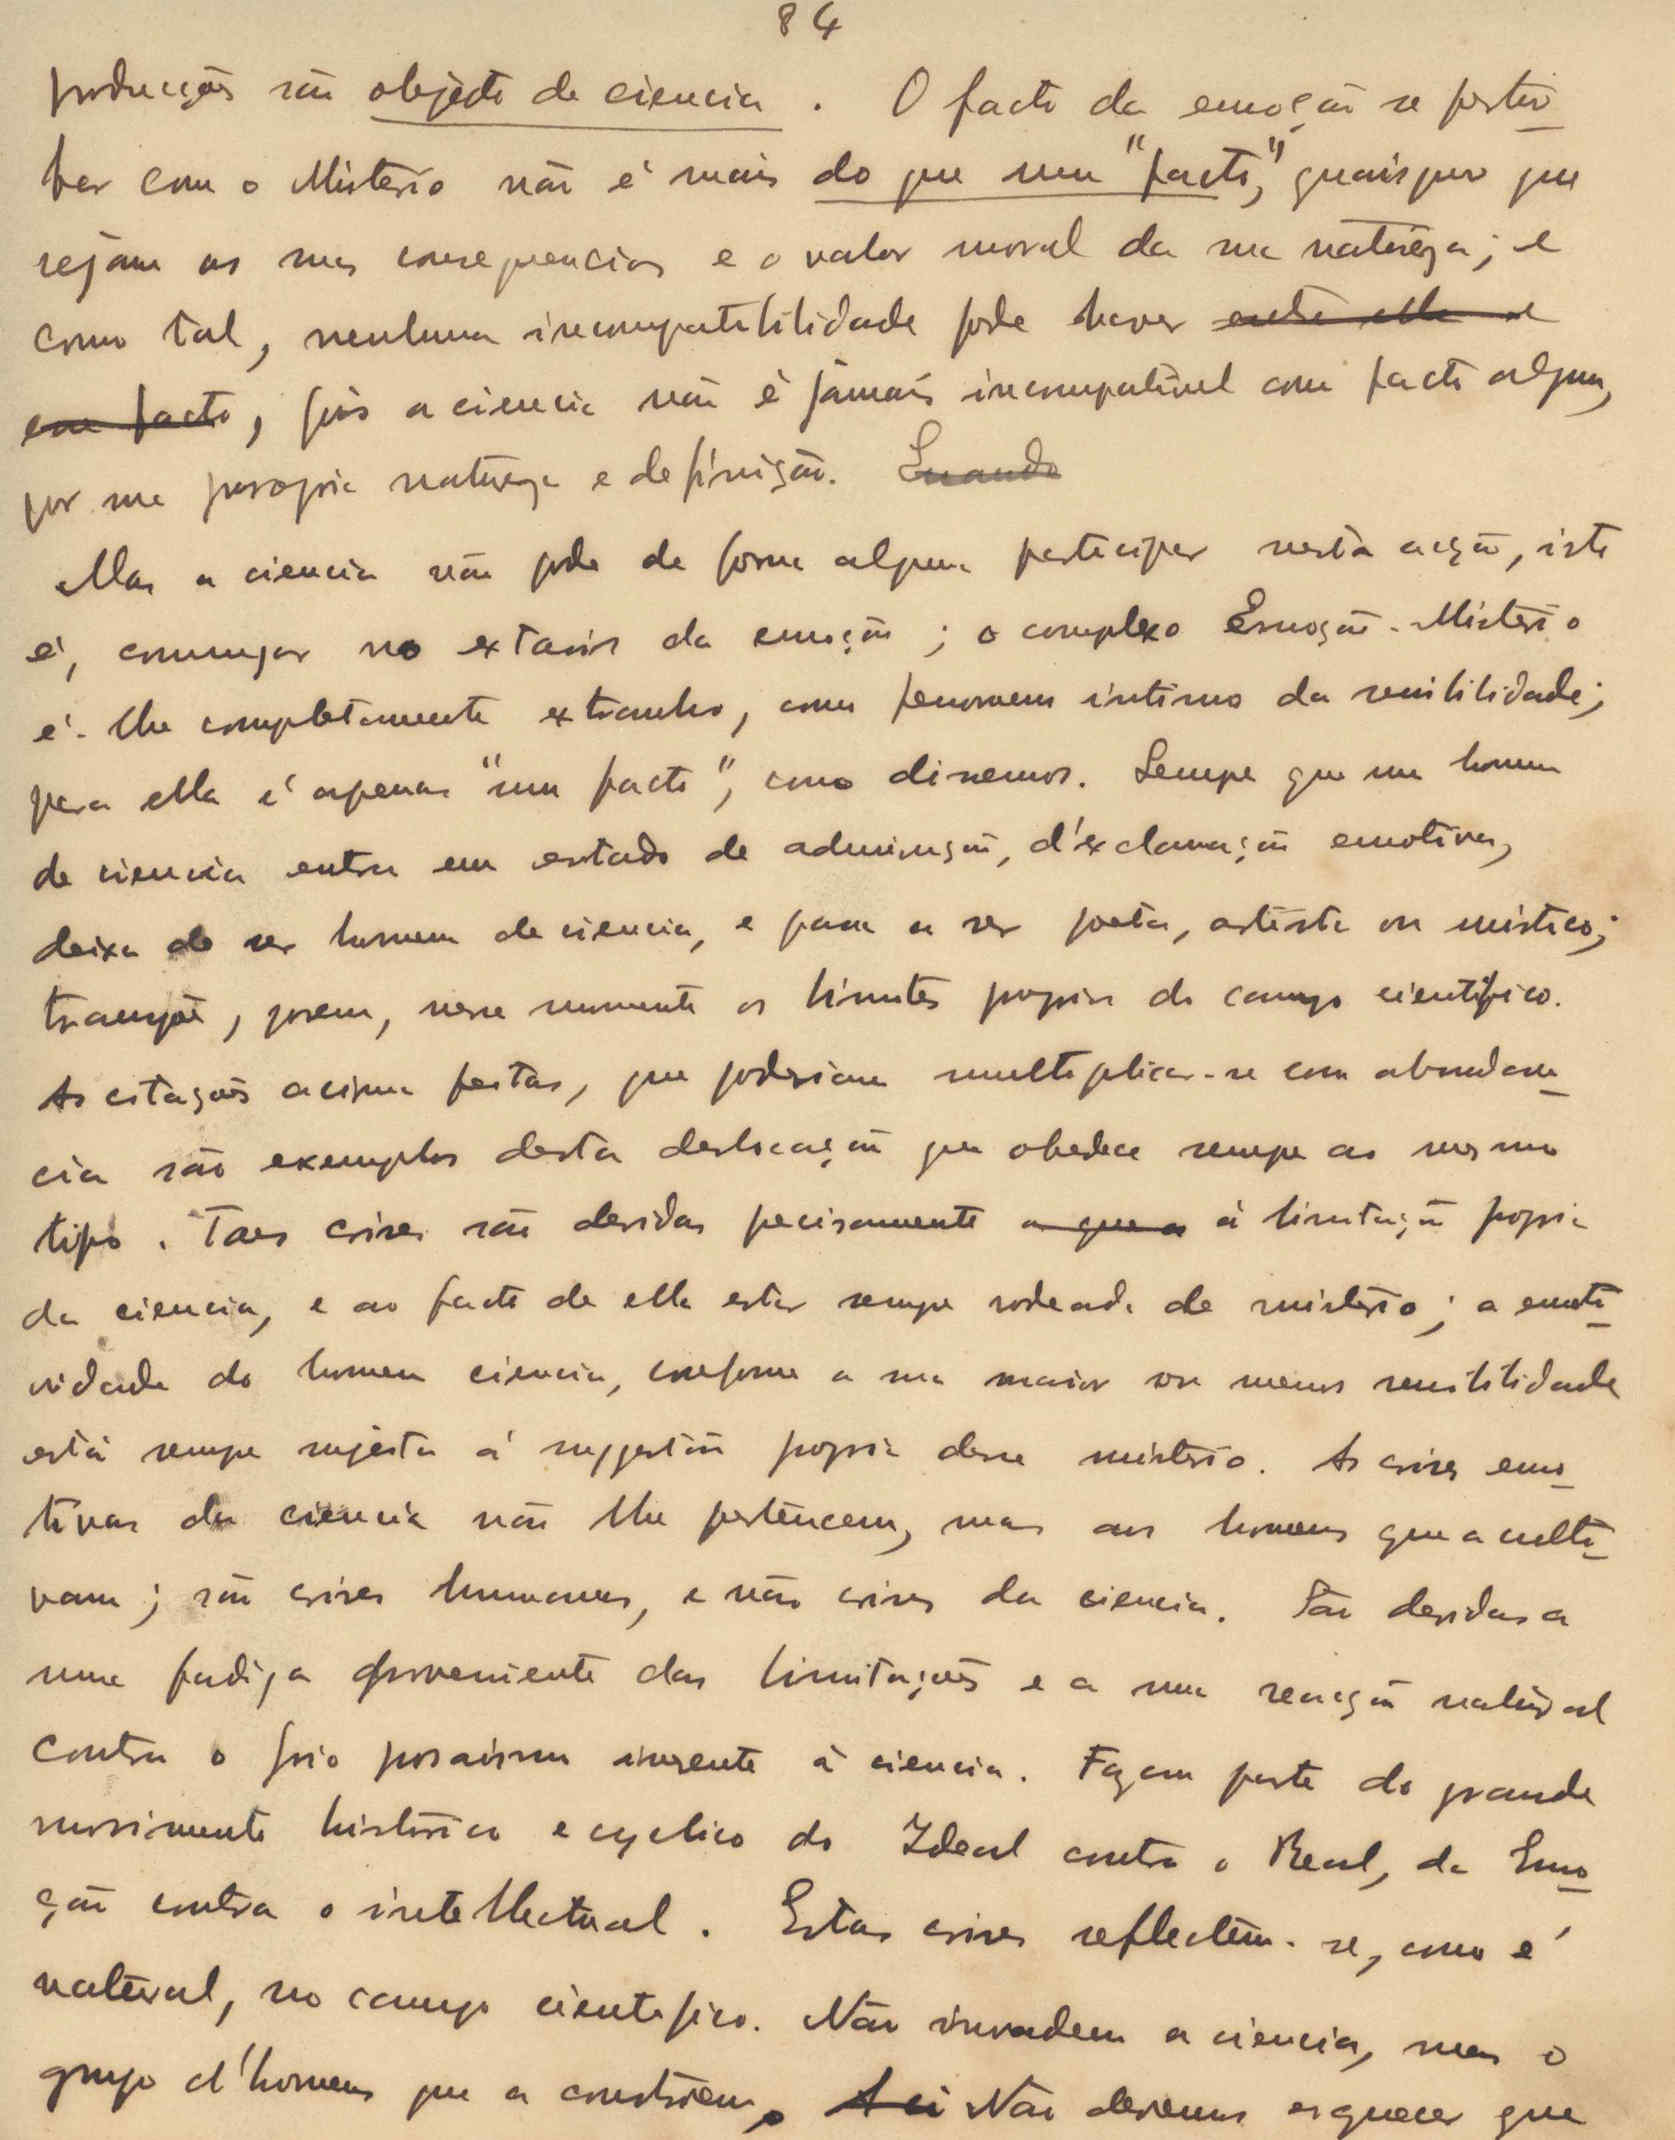 84
producções são objecto de ciencia. O facto da emoção se pertur-
bar com o Misterio não é mais do que um "facto," quaisquer que
sejam as suas consequencias e o valor moral da sua natureza; e
como tal, nenhuma incompatibilidade pode haver entre ella e
em facto, pois a ciencia não é jámais incompativel com facto algum,
por sua propria natureza e definição. Quando
Mas a ciencia não pode de forma alguma participar nesta acção, isto
é, comungar no extasis da emoção; o complexo Emoção-Misterio
é-lhe completamente extranho, como fenomeno intimo da sensibilidade;
para ella é apenas "um facto", como dissemos. Sempre que um homem
de ciencia entra em estado de admiração, d'exclamação emotiva,
deixa de ser homem de ciencia, e passa a ser poeta, artista ou mistico;
transpõe, porem, nesse momento os limites proprios do campo cientifico.
As citações acima feitas, que poderiam multiplicar-se com abundan-
cia são exemplos desta deslocação que obedece sempre ao mesmo
tipo. Taes crises são devidas precisamente a que a á limitação propria
da ciencia, e ao facto de ella estar sempre rodeada de misterio; a emoti-
vidade do homem ciencia, conforme a sua maior ou menor sensibilidade
está sempre sujeita á suggestão propria desse misterio. As crises emo-
tivas da ciencia não lhe pertencem, mas aos homens que a culti-
vam; são crises humanas, e não crises da ciencia. São devidas a
uma fadiga proveniente das limitações e a uma reacção natural
contra o frio prosaismo inerente á ciencia. Fazem parte do grande
movimento historico e cyclico do Ideal contra o Real, da Emo-
ção contra o intellectual. Estas crises reflectem-se, como é
natural, no campo cientifico. Não invadem a ciencia, mas o
grupo d'homens que a constroem. A ci Não devemos esquecer que